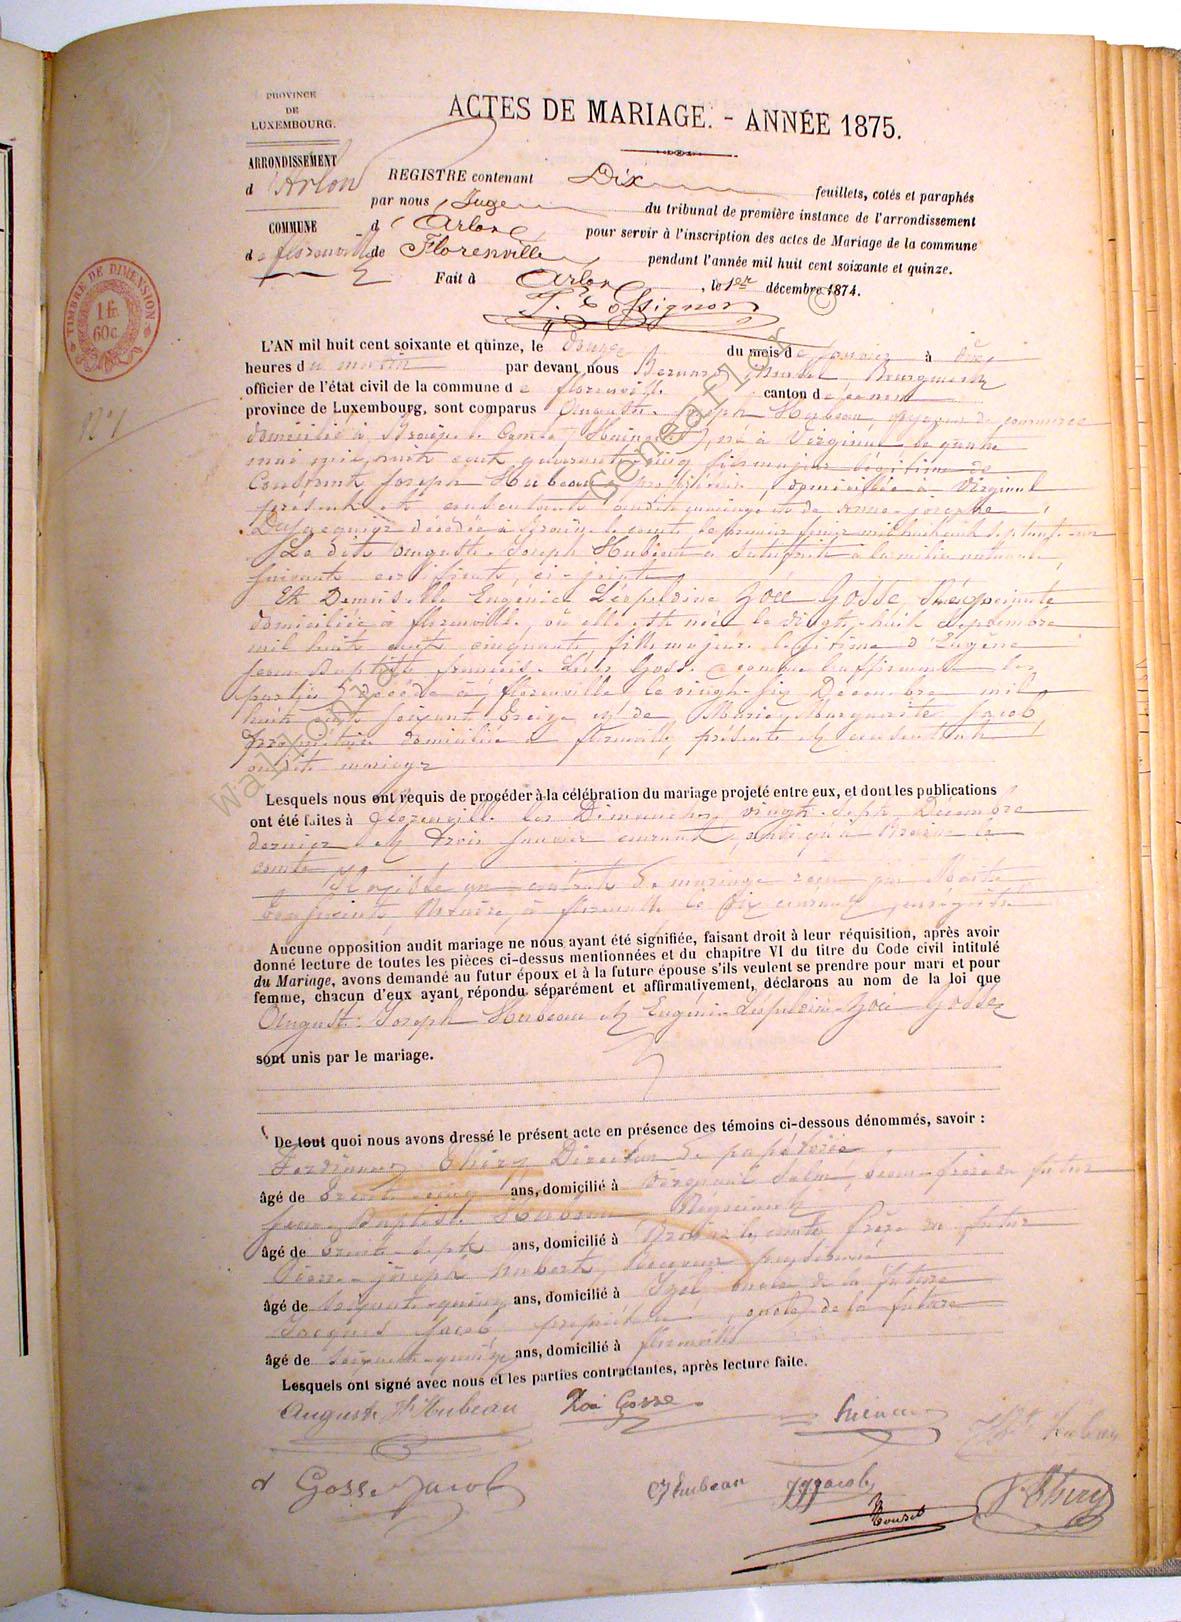 PROVINCE
DE
LUXEMBOURG.
ACTES DE MARIAGE. - ANNÉE 1875.
ARRONDISSEMENT
d'Arlon
COMMUNE
de florenville
REGISTRE contenant Dix feuillets, cotés et paraphés
par nous Juge du tribunal de première instance de l'arrondissement
d'Arlon pour servir à l'inscription des actes de Mariage de la commune
de Florenville pendant l'année mil huit cent soixante et quinze.
Fait à Arlon, le 1er décembre 1874.
TIMBRE DE DIMENSION
1 fr.
60 c.
N° 1
L'AN mil huit cent soixante et quinze, le douze du mois de Janvier à dix
heures du matin par devant nous Bernard
officier de l'état civil de la commune de florenville canton de
province de Luxembourg, sont comparus Auguste Joseph Hubeau, de commerce
domicilié à Braine le Comte (Hainaut), né à Virginal le quatre
mai mil huit cent quarante-cinq fils majeur légitime de
Constant Joseph Hubeau, propriétaire, domicilié à Virginal
présent et consentant audit mariage et de Anne-josephe
décédée à Braine le comte, le premier mil huit cent septante
Le dit Auguste Joseph Hubeau a satisfait à la milice nationale
suivant certificat ci-joint
Et Demoiselle Eugénie Léopoldine Zoée Gosse,
domiciliée à florenville, où elle est née le vingt-huit Septembre
mil huit cent cinquante, fille majeure légitime d'Eugène
Jean Baptiste françois Louis Gosse comme l'affirment les
parties décédé à florenville le vingt-six Décembre mil
huit cent soixante treize et de Marie Marguerite Jacob,
propriétaire domiciliée à florenville, présente et consentante
audit mariage
Lesquels nous ont requis de procéder à la célébration du mariage projeté entre eux, et dont les publications
ont été faites à florenville les Dimanches vingt-sept Décembre
dernier et trois Janvier courant, ainsi qu'à Braine le
comte
Il existe un contrat de mariage reçu par Maître
Notaire, à florenville le six courant, enregistré
Aucune opposition audit mariage ne nous ayant été signifiée, faisant droit à leur réquisition, après avoir
donné lecture de toutes les pièces ci-dessus mentionnées et du chapitre VI du titre du Code civil intitulé
du Mariage, avons demandé au futur époux et à la future épouse s'ils veulent se prendre pour mari et pour
femme, chacun d'eux ayant répondu séparément et affirmativement, déclarons au nom de la loi que
Auguste Joseph Hubeau et Eugénie Léopoldine Zoée Gosse
sont unis par le mariage.
De tout quoi nous avons dressé le présent acte en présence des témoins ci-dessous dénommés, savoir :
Ferdinand Thiry Directeur de papéterie
âgé de trente-cinq ans, domicilié à Virginal Samme, beau-frère du futur
Jean-Baptiste Hubeau Négociant
âgé de trente-sept ans, domicilié à Braine le comte frère du futur
Pierre-joseph hubert, Receveur pensionné
âgé de soixante-quinze ans, domicilié à Izel oncle de la future
Jacques Jacob, propriétaire, oncle de la future
âgé de soixante-quinze ans, domicilié à florenville
Lesquels ont signé avec nous et les parties contractantes, après lecture faite.
Auguste Jh Hubeau Zoé Gosse JBte Hubeau
Gosse Jacob CJ Hubeau JJJacob F. Thiry